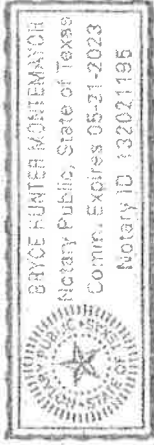 BRYCE HUNTER MONTEMAYOR
Notary Public, State of Texas
Comm. Expires 05-21-2023
Notary ID 132021195